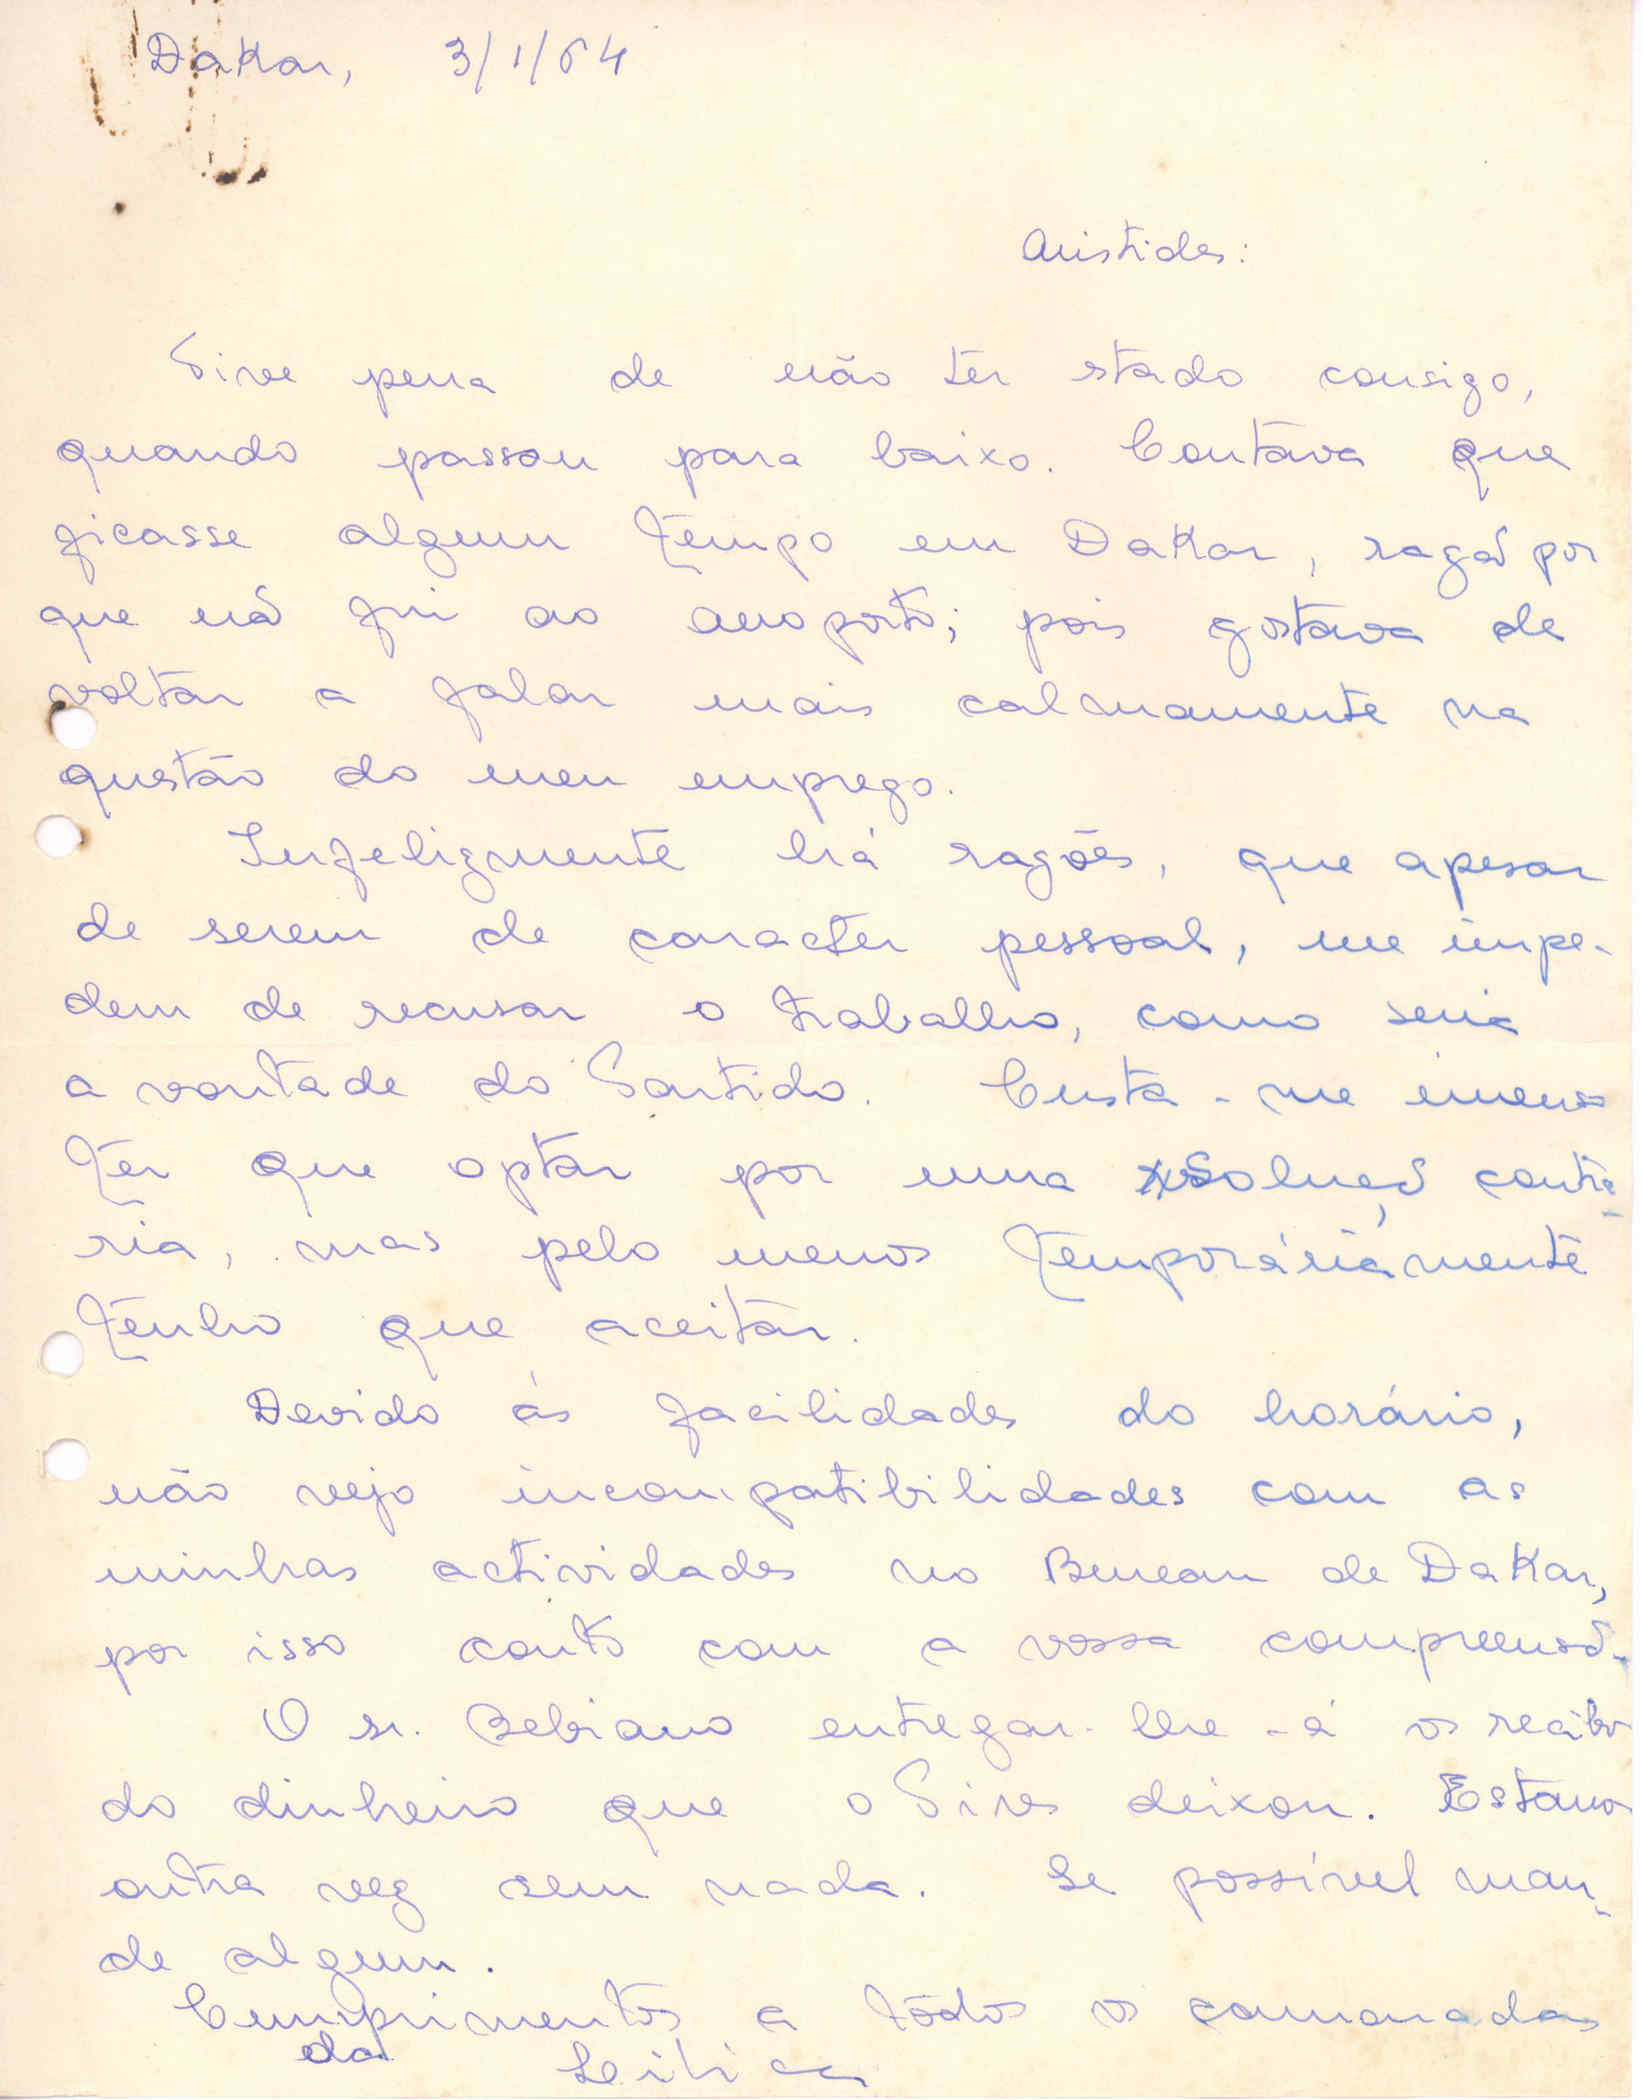 Dakar, 3/1/64
Aristides:
Tive pena de não ter stado consigo,
quando passou para baixo. Contava que
ficasse algum tempo em Dakar, razão por
que não fui ao aeroporto; pois gostava de
voltar a falar mais calmamente na
questão do meu emprego.
Infelizmente há razões, que apesar
de serem de caracter pessoal, me impe-
dem de recusar o trabalho, como seria
a vontade do Partido. Custa-me imenso
ter que optar por uma solução contrá-
ria, mas pelo menos temporáriamente
tenho que aceitar.
Devido ás facilidades do horário,
não vejo incompatibilidades com as
minhas actividades no Bureau de Dakar,
por isso conto com a vossa compreensão.
O sr. Bebiano entregar-lhe-á os recibos
do dinheiro que o Pires deixou. Estamos
outra vez sem nada. Se possível man-
de algum.
Cumprimentos a tôdos os camaradas
da Lilica